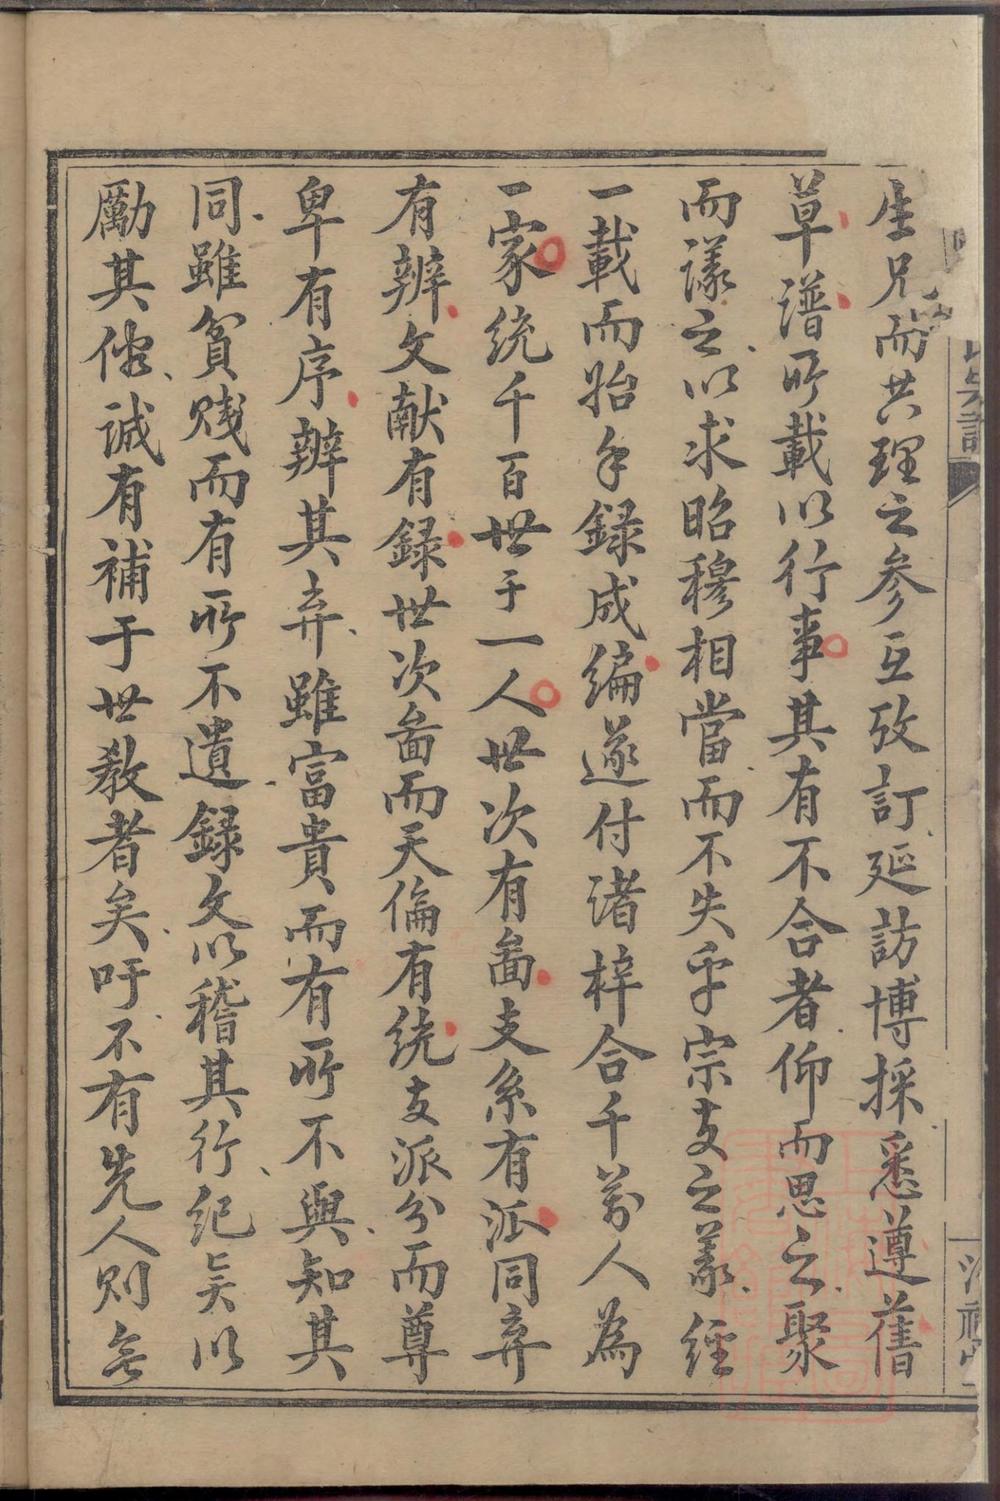 生兄而共理之参互攷訂延訪博採悉遵舊
草譜所載以行事其有不合者仰而思之聚
而議之以求昭穆相當而不失乎宗支之義經
一載而貽手録成編遂付諸梓合千萬人為
一家统千百世于一人世次有啚支系有派同弃
有辨文献有録世次啚而天倫有统支派分而尊
卑有序辨其弃雖富貴而有所不與知其
同雖貧賤而有所不遺録文以稽其行纪矣以
勵其俗誠有補于世教者矣吁不有先人则無